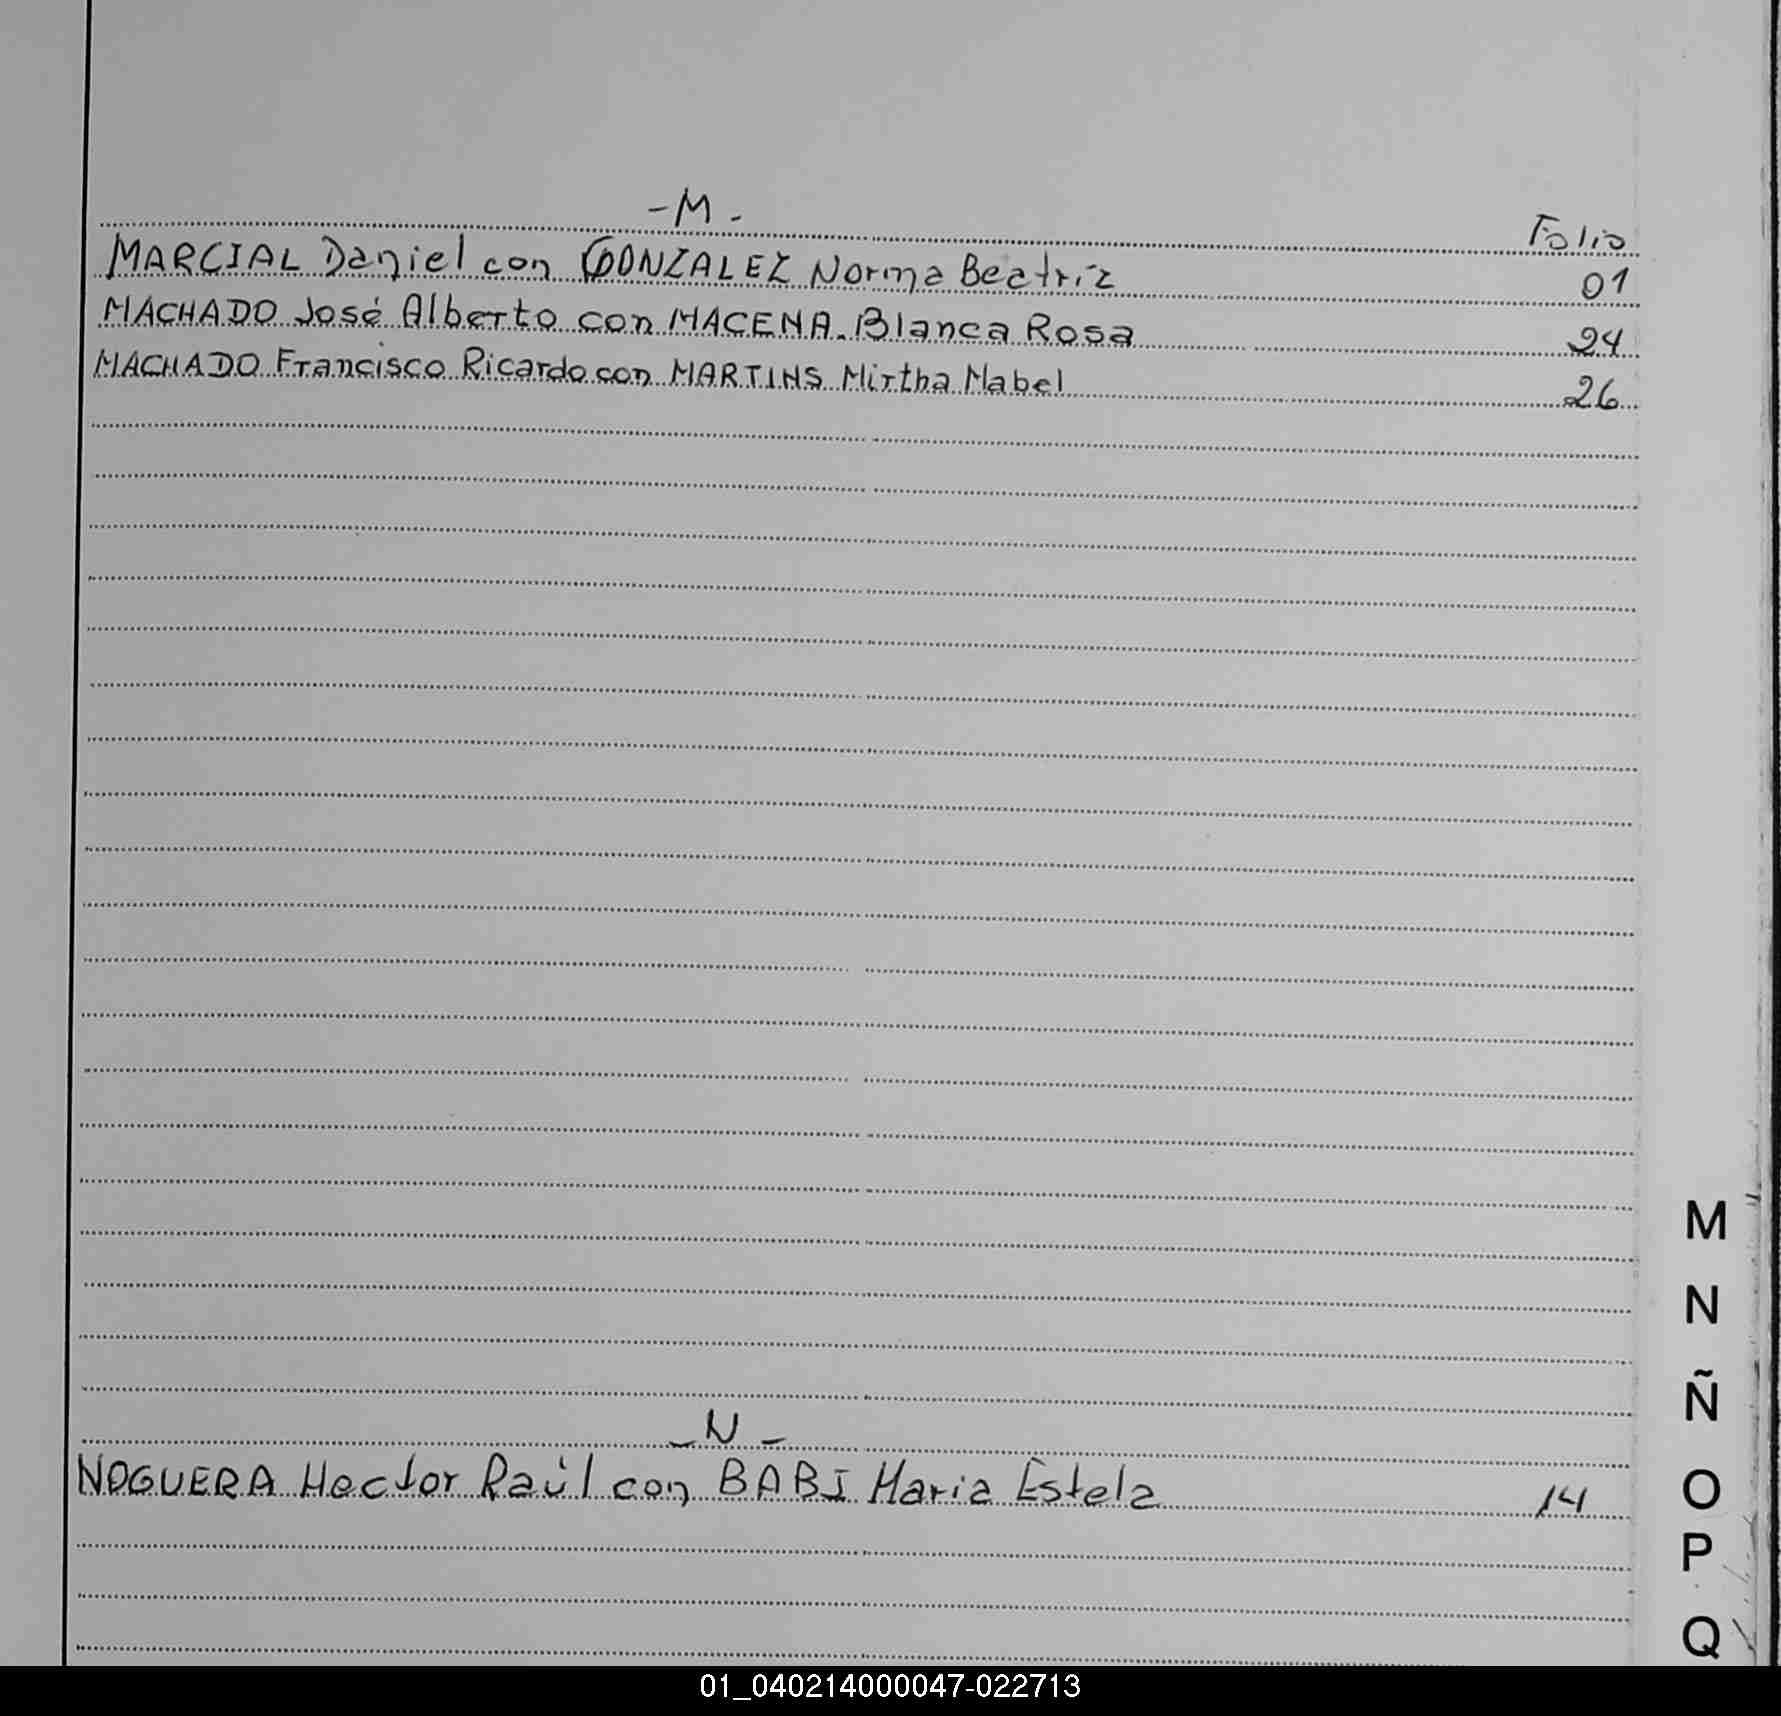 -M-
Folio
MARCIAL Daniel con GONZALEZ Norma Beatriz 01
MACHADO José Alberto con MACENA Blanca Rosa 24
MACHADO Francisco Ricardo con MARTINS Mirtha Mabel 26
-N-
NOGUERA Hector Raúl con BABI Maria Estela 14
M
N
Ñ
O
P
Q
01_040214000047-022713